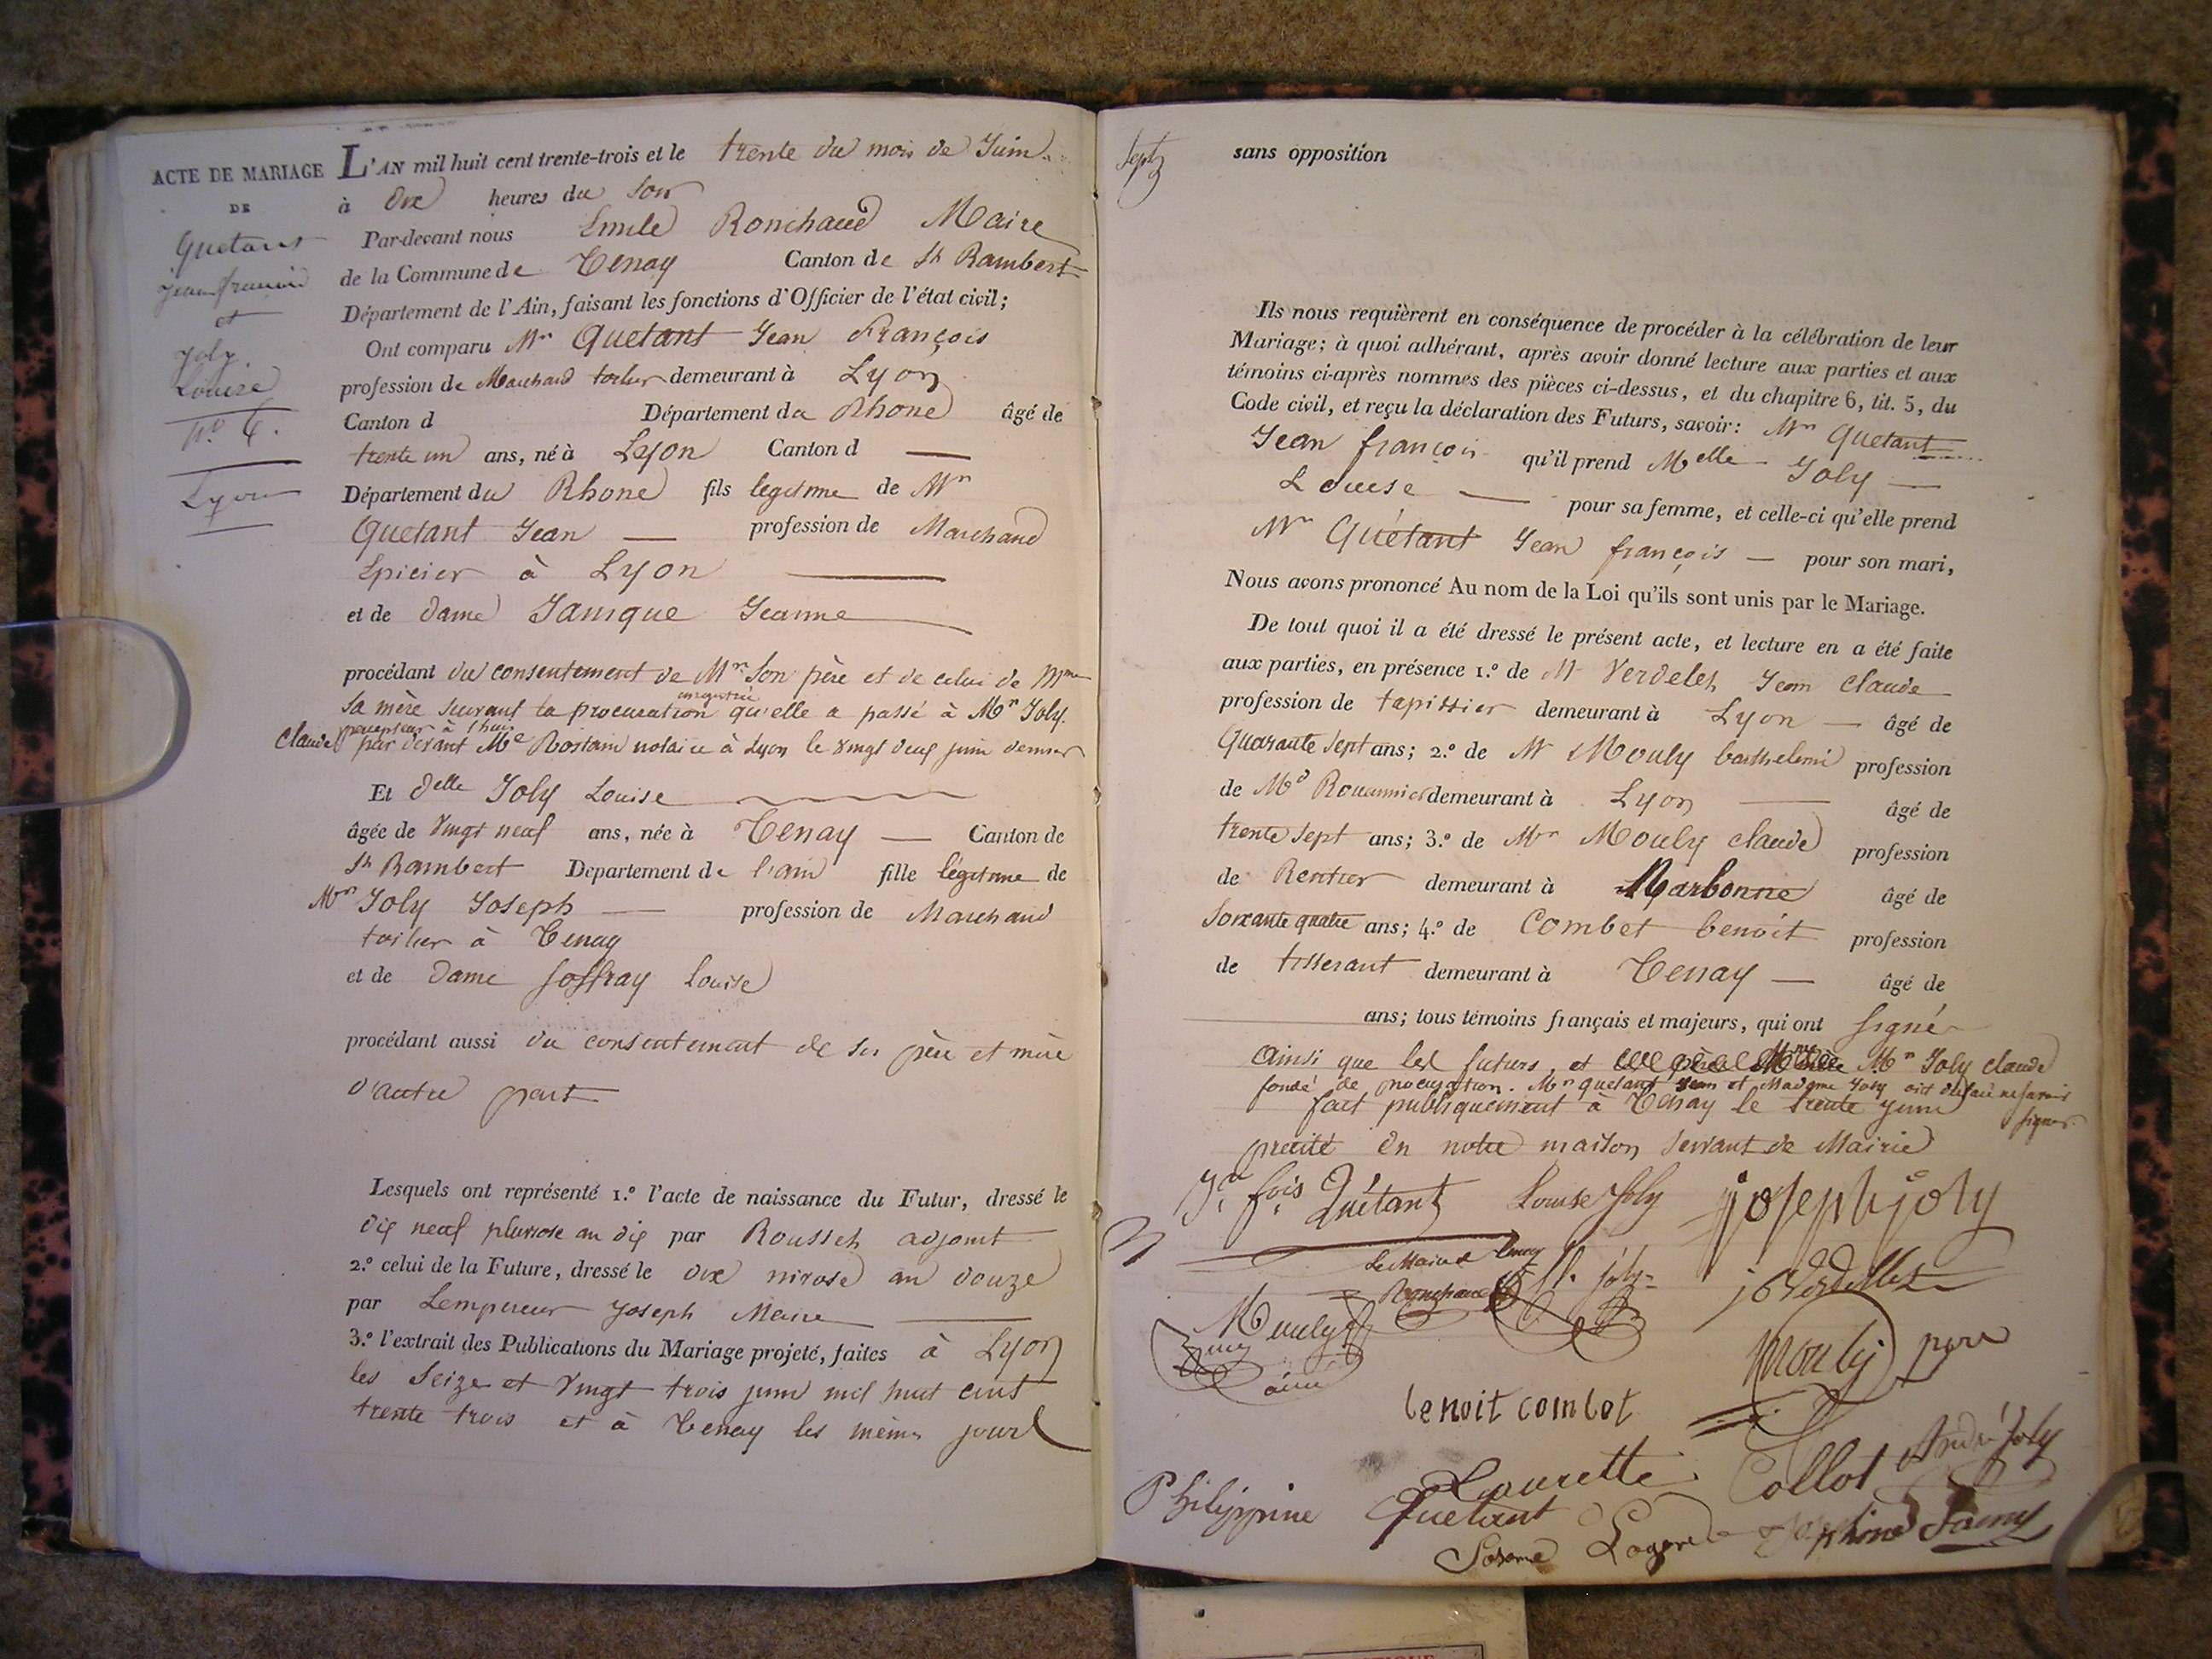 ACTE DE MARIAGE
DE
Quetant
Jean françois
et
Joly
Louise
N.º 6.
Lyon
L'AN mil huit cent trente-trois et le trente du mois de Juin
à dix heures du soir
Par-devant nous Emile Ronchaud Maire
de la Commune de Tenay Canton de St Rambert
Département de l'Ain, faisant les fonctions d'Officier de l'état civil;
Ont comparu Mr Quetant Jean François
profession de Marchand toilier demeurant à Lyon
Canton d Département du Rhone âgé de
trente un ans, né à Lyon Canton d —
Département du Rhone fils legitime de Mr
Quetant Jean — profession de Marchand
Epicier à Lyon —
et de dame Janique Jeanne
procédant du consentement de Mr Son père et de celui de Mme
sa mère suivant la procuration qu'elle a passé à Mr Joly
Claude percepteur à
par devant Me Rostain notaire à Lyon le vingt deux juin dernier
Et delle Joly Louise
âgée de vingt neuf ans, née à Tenay — Canton de
St Rambert Département de l'ain fille légitime de
Mr Joly Joseph — profession de Marchand
toilier à Tenay
et de dame Joffray Louise
procédant aussi du consentement de ses père et mère
d'autre part
Lesquels ont représenté 1.º l'acte de naissance du Futur, dressé le
dix neuf pluviose an dix par Rousset adjoint
2.º celui de la Future, dressé le dix nivose an douze
par Lempereur Joseph Maire —
3.º l'extrait des Publications du Mariage projeté, faites à Lyon
les Seize et vingt trois juin mil huit cent
trente trois et à Tenay les mêmes jours
sans opposition
Ils nous requièrent en conséquence de procéder à la célébration de leur
Mariage; à quoi adhérant, après avoir donné lecture aux parties et aux
témoins ci-après nommés des pièces ci-dessus, et du chapitre 6, tit. 5, du
Code civil, et reçu la déclaration des Futurs, savoir: Mr Quetant
Jean françois qu'il prend Melle Joly —
Louise — pour sa femme, et celle-ci qu'elle prend
Mr Quétant Jean françois — pour son mari,
Nous avons prononcé Au nom de la Loi qu'ils sont unis par le Mariage.
De tout quoi il a été dressé le présent acte, et lecture en a été faite
aux parties, en présence 1.º de Mr Verdelet Jean Claude
profession de tapissier demeurant à Lyon — âgé de
Quarante sept ans; 2.º de Mr Mouly barthelemi profession
de Md Rouannier demeurant à Lyon — âgé de
trente sept ans; 3.º de Mr Mouly claude profession
de Rentier demeurant à Narbonne âgé de
Soixante quatre ans; 4.º de Combet benoit profession
de tisserant demeurant à Tenay — âgé de
ans; tous témoins français et majeurs, qui ont signé
ainsi que les futurs, et Mr Joly claude
fondé de procuration. Mr quetant Jean et Madame Joly ont déclaré ne savoir
signer.
fait publiquement à Tenay le trente juin
précité en notre maison servant de Mairie
Jn fois Quétant Louise Joly joseph joly
Le Maire
Ronchaud Cl. joly
Mouly
ainé
Mouly père
benoit combet
Laurette Collot André Joly
Philippine Quetant
Josephine